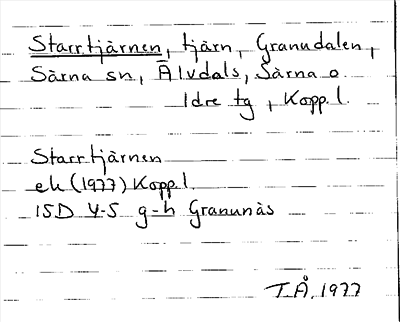 Starrtjärnen, tjärn, Granudalen,
Särna sn, Älvdals, Särna o.
Idre tg, Kopp. l.
Starrtjärnen
ek (1977) Kopp. l.
15D 4-5 g-h Granunäs
T.Å. 1977